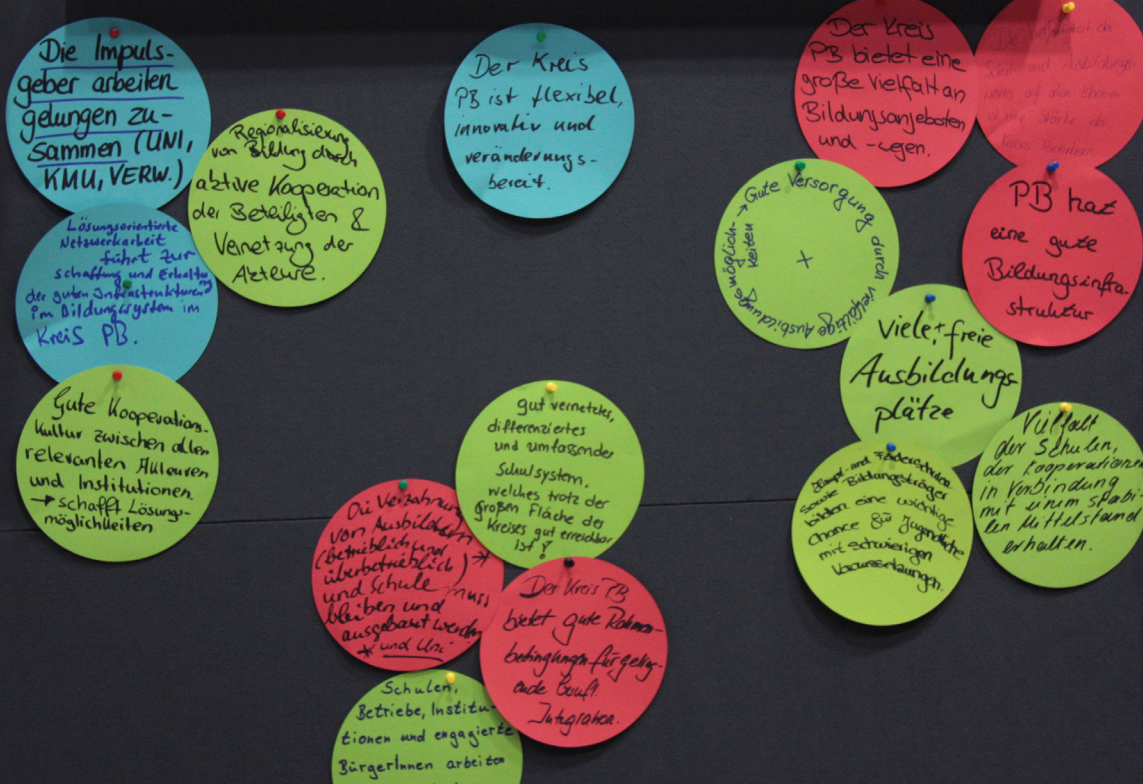 Die Impuls-
geber arbeiten
gelungen zu-
sammen (UNI,
KMU, VERW.)
Regionalisierung
von Bildung durch
aktive Kooperation
der Beteiligten &
Vernetzung der
Akteure.
Lösungsorientierte
Netzwerkarbeit
führt zur
schaffung und Erhaltung
der guten Infrastrukturen
im Bildungssystem im
Kreis PB.
Gute Kooperations-
kultur zwischen allen
relevanten Akteuren
und Institutionen
→ schafft Lösungs-
möglichkeiten
Der Kreis
PB ist flexibel,
innovativ und
veränderungs-
bereit.
gut vernetztes,
differenziertes
und umfassender
Schulsystem,
welches trotz der
großen Fläche des
Kreises gut erreichbar
ist!
Die Verzahnung
von Ausbildern
(betrieblich und
überbetrieblich) *
und Schule muss
bleiben und
ausgebaut werden
* und Uni
Der Kreis PB
bietet gute Rahmen-
bedingungen für geling-
ende berufl.
Integration.
Schulen,
Betriebe, Institu-
tionen und engagierte
BürgerInnen arbeiten
Der Kreis
PB bietet eine
große Vielfalt an
Bildungsangeboten
und -wegen.
Schul- und Ausbildungs-
auf allen Ebenen
ist eine Stärke des
Kreises Paderborn
PB hat
eine gute
Bildungsinfra-
struktur
→ Gute Versorgung durch vielfältige Ausbildungsmöglich-
keiten
+
Viele + freie
Ausbildungs-
plätze
Haupt- und Förderschulen
sowie Bildungsträger
bilden eine wichtige
Chance für Jugendliche
mit schwierigen
Voraussetzungen.
Vielfalt
der Schulen,
der Kooperationen
in Verbindung
mit einem stabi-
len Mittelstand
erhalten.